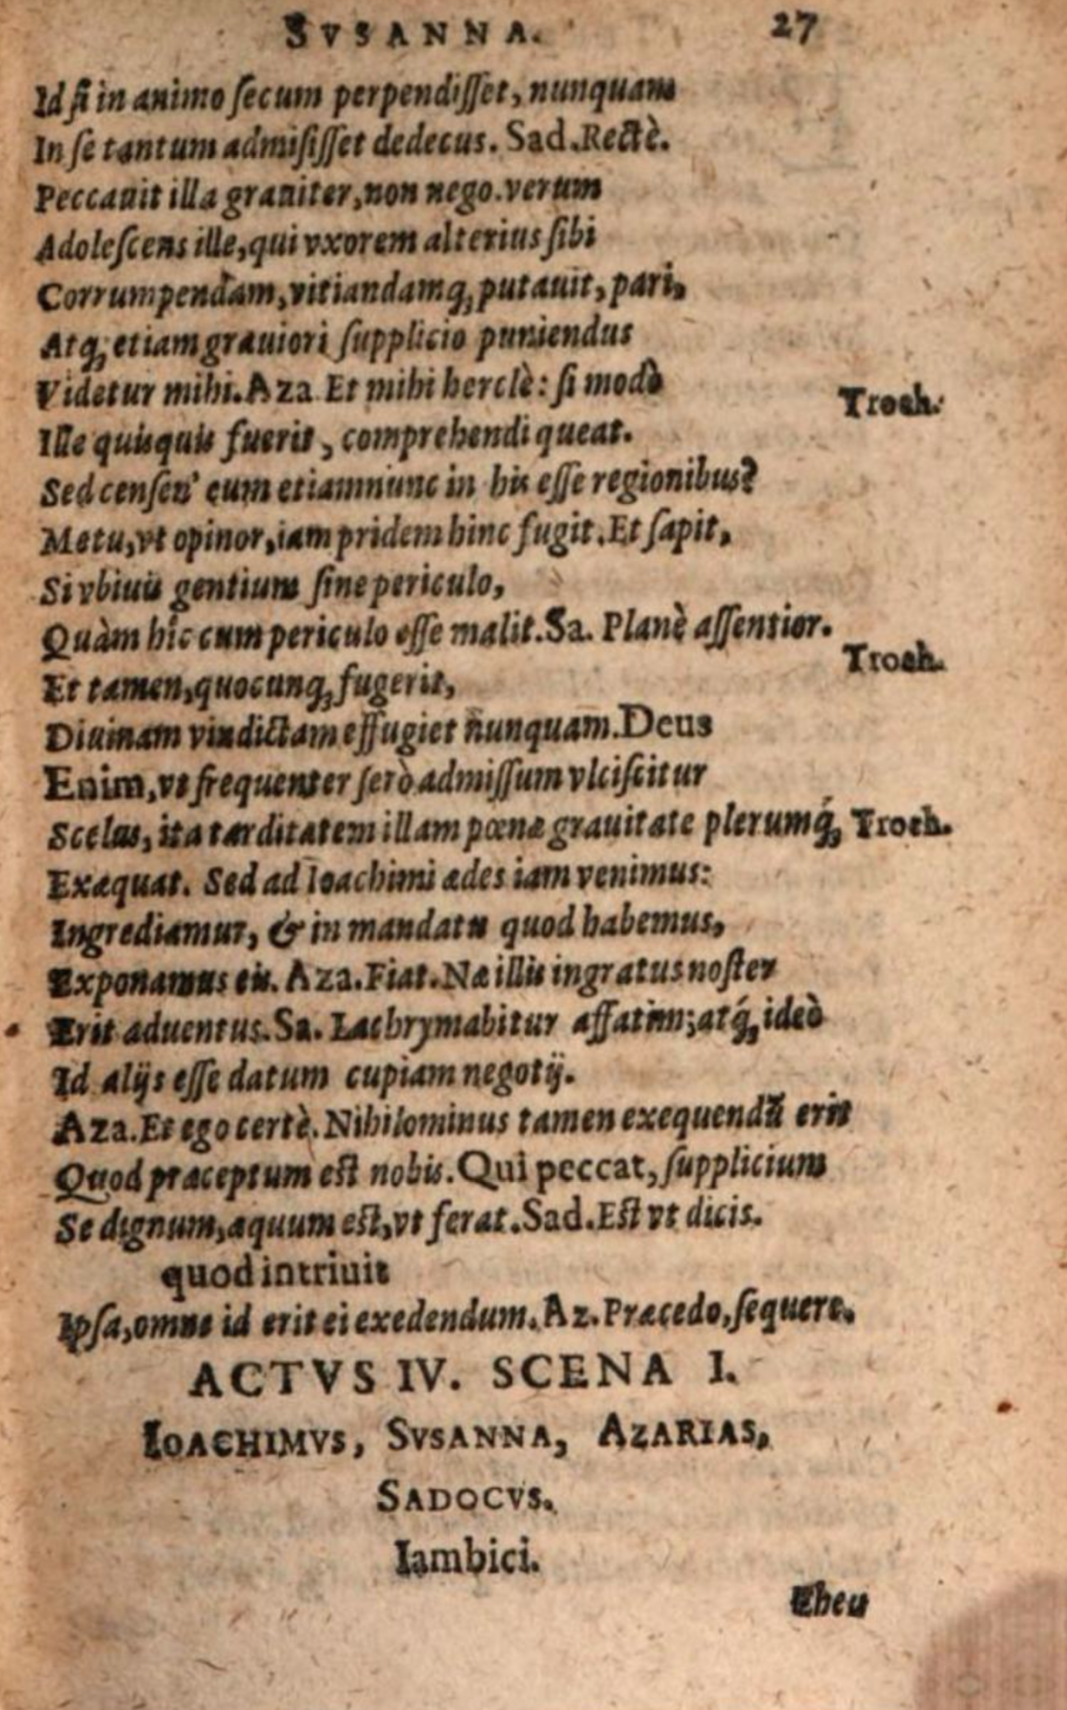 SVSANNA. 27
Id ſi in animo ſecum perpendiſſet, nunquam
In ſe tantum admiſiſſet dedecus. Sad. Rectè.
Peccauit illa grauiter, non nego. verum
Adoleſcens ille, qui vxorem alterius ſibi
Corrumpendam, vitiandamq́; putauit, pari,
Atq́; etiam grauiori ſupplicio puniendus
Videtur mihi. Aza. Et mihi herclè: ſi modò
Troch.
Ille quiſquis fuerit, comprehendi queat.
Sed cenſen' eum etiamnunc in his eſſe regionibus?
Metu, vt opinor, iam pridem hinc fugit. Et ſapit,
Si vbiuis gentium ſine periculo,
Quàm hîc cum periculo eſſe malit. Sa. Planè aſſentior.
Troch.
Et tamen, quocunq́; fugerit,
Diuinam vindictam effugiet nunquam. Deus
Enim, vt frequenter ſerò admiſſum vlciſcitur
Scelus, ita tarditatem illam pœnæ grauitate plerumq́; Troch.
Exæquat. Sed ad Ioachimi ædes iam venimus:
Ingrediamur, & in mandatis quod habemus,
Exponamus eis. Aza. Fiat. Næ illis ingratus noſter
Erit aduentus. Sa. Lachrymabitur affatim; atq́; ideò
Id alijs eſſe datum cupiam negotij.
Aza. Et ego certè. Nihilominus tamen exequendũ erit
Quod præceptum eſt nobis. Qui peccat, ſupplicium
Se dignum, æquum eſt, vt ferat. Sad. Eſt vt dicis.
quod intriuit
Ipſa, omne id erit ei exedendum. Az. Præcedo, ſequere.
ACTVS IV. SCENA I.
IOACHIMVS, SVSANNA, AZARIAS,
SADOCVS.
Iambici.
Eheu